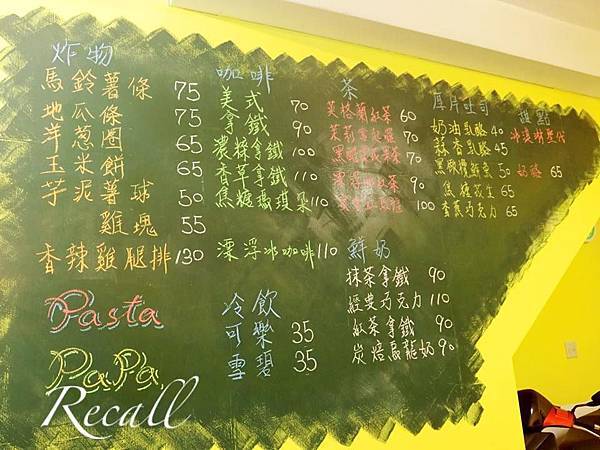 炸物
馬鈴薯條 75
地瓜條 75
洋蔥圈 65
玉米餅 65
芋泥薯球 50
雞塊 55
香辣雞腿排 130
Pasta
PaPa
咖啡
美式 70
拿鐵 90
濃粹拿鐵 100
香草拿鐵 110
焦糖瑪琪朵 110
漂浮冰咖啡 110
冷飲
可樂 35
雪碧 35
茶
英格蘭紅茶 60
70
70
漂浮冰紅茶 90
100
鮮奶
抹茶拿鐵 90
經典巧克力 110
紅茶拿鐵 90
炭焙烏龍奶 90
厚片吐司
奶油乳酪 40
蒜香乳酪 45
50
焦糖花生 65
香蕉巧克力 65
甜點
奶酪 65
Recall